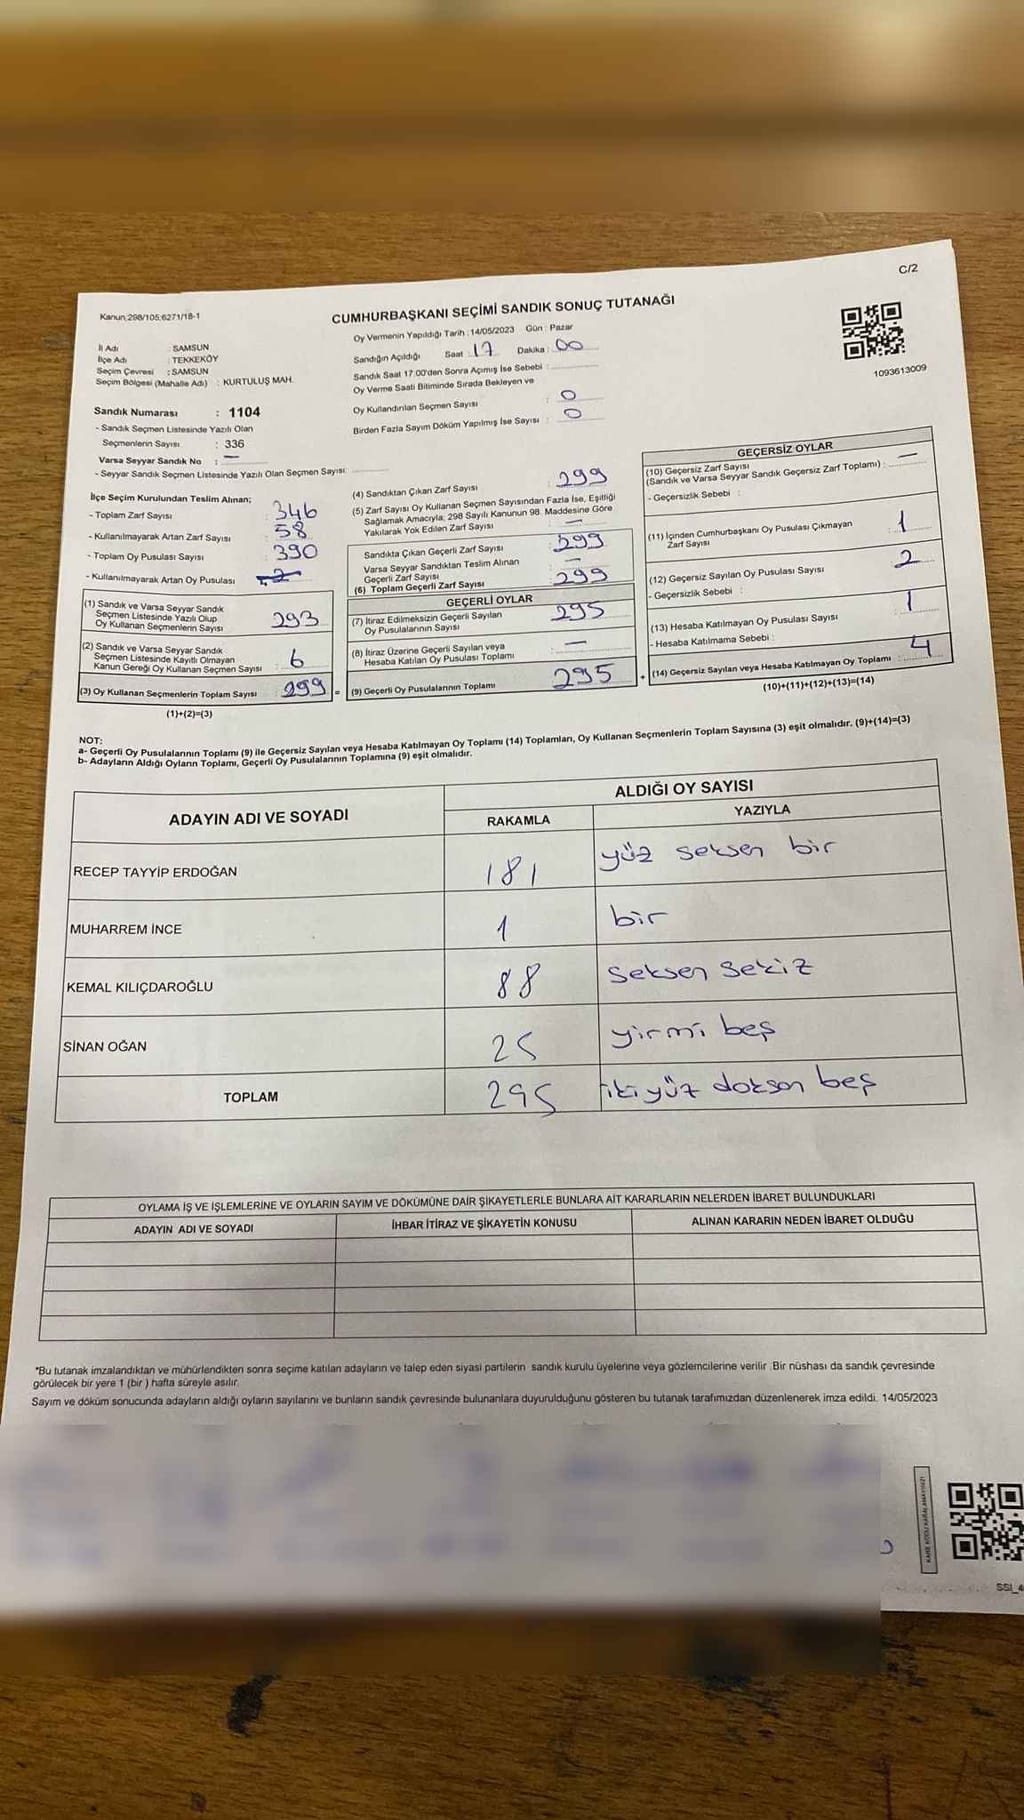 C/2
Kanun:298/105;6271/18-1
CUMHURBAŞKANI SEÇİMİ SANDIK SONUÇ TUTANAĞI
İl Adı : SAMSUN
İlçe Adı : TEKKEKÖY
Seçim Çevresi : SAMSUN
Seçim Bölgesi (Mahalle Adı) : KURTULUŞ MAH.
Oy Vermenin Yapıldığı Tarih : 14/05/2023 Gün : Pazar
Sandığın Açıldığı Saat : 17 Dakika : 00
Sandık Saat 17:00'den Sonra Açımış İse Sebebi :
Oy Verme Saati Bitiminde Sırada Bekleyen ve
Oy Kullandırılan Seçmen Sayısı : 0
Birden Fazla Sayım Döküm Yapılmış İse Sayısı : 0
1093613009
Sandık Numarası : 1104
- Sandık Seçmen Listesinde Yazılı Olan
Seçmenlerin Sayısı : 336
Varsa Seyyar Sandık No : —
- Seyyar Sandık Seçmen Listesinde Yazılı Olan Seçmen Sayısı:
İlçe Seçim Kurulundan Teslim Alınan;
- Toplam Zarf Sayısı : 346
- Kullanılmayarak Artan Zarf Sayısı : 58
- Toplam Oy Pusulası Sayısı : 390
- Kullanılmayarak Artan Oy Pusulası
(1) Sandık ve Varsa Seyyar Sandık
Seçmen Listesinde Yazılı Olup
Oy Kullanan Seçmenlerin Sayısı : 293
(2) Sandık ve Varsa Seyyar Sandık
Seçmen Listesinde Kayıtlı Olmayan
Kanun Gereği Oy Kullanan Seçmen Sayısı : 6
(3) Oy Kullanan Seçmenlerin Toplam Sayısı : 299 =
(1)+(2)=(3)
(4) Sandıktan Çıkan Zarf Sayısı : 299
(5) Zarf Sayısı Oy Kullanan Seçmen Sayısından Fazla İse, Eşitliği
Sağlamak Amacıyla; 298 Sayılı Kanunun 98. Maddesine Göre
Yakılarak Yok Edilen Zarf Sayısı : —
Sandıkta Çıkan Geçerli Zarf Sayısı : 299
Varsa Seyyar Sandıktan Teslim Alınan
Geçerli Zarf Sayısı : —
(6) Toplam Geçerli Zarf Sayısı : 299
GEÇERLİ OYLAR
(7) İtiraz Edilmeksizin Geçerli Sayılan
Oy Pusulalarının Sayısı : 295
(8) İtiraz Üzerine Geçerli Sayılan veya
Hesaba Katılan Oy Pusulası Toplamı : —
(9) Geçerli Oy Pusulalarının Toplamı : 295 +
GEÇERSİZ OYLAR
(10) Geçersiz Zarf Sayısı
(Sandık ve Varsa Seyyar Sandık Geçersiz Zarf Toplamı) : —
- Geçersizlik Sebebi :
(11) İçinden Cumhurbaşkanı Oy Pusulası Çıkmayan
Zarf Sayısı : 1
(12) Geçersiz Sayılan Oy Pusulası Sayısı : 2
- Geçersizlik Sebebi :
(13) Hesaba Katılmayan Oy Pusulası Sayısı : 1
- Hesaba Katılmama Sebebi :
(14) Geçersiz Sayılan veya Hesaba Katılmayan Oy Toplamı : 4
(10)+(11)+(12)+(13)=(14)
NOT:
a- Geçerli Oy Pusulalarının Toplamı (9) ile Geçersiz Sayılan veya Hesaba Katılmayan Oy Toplamı (14) Toplamları, Oy Kullanan Seçmenlerin Toplam Sayısına (3) eşit olmalıdır. (9)+(14)=(3)
b- Adayların Aldığı Oyların Toplamı, Geçerli Oy Pusulalarının Toplamına (9) eşit olmalıdır.
ADAYIN ADI VE SOYADI
ALDIĞI OY SAYISI
RAKAMLA YAZIYLA
RECEP TAYYİP ERDOĞAN 181 yüz seksen bir
MUHARREM İNCE 1 bir
KEMAL KILIÇDAROĞLU 88 seksen sekiz
SİNAN OĞAN 25 yirmi beş
TOPLAM 295 ikiyüz doksan beş
OYLAMA İŞ VE İŞLEMLERİNE VE OYLARIN SAYIM VE DÖKÜMÜNE DAİR ŞİKAYETLERLE BUNLARA AİT KARARLARIN NELERDEN İBARET BULUNDUKLARI
ADAYIN ADI VE SOYADI İHBAR İTİRAZ VE ŞİKAYETİN KONUSU ALINAN KARARIN NEDEN İBARET OLDUĞU
*Bu tutanak imzalandıktan ve mühürlendikten sonra seçime katılan adayların ve talep eden siyasi partilerin sandık kurulu üyelerine veya gözlemcilerine verilir .Bir nüshası da sandık çevresinde
görülecek bir yere 1 (bir ) hafta süreyle asılır.
Sayım ve döküm sonucunda adayların aldığı oyların sayılarını ve bunların sandık çevresinde bulunanlara duyurulduğunu gösteren bu tutanak tarafımızdan düzenlenerek imza edildi. 14/05/2023